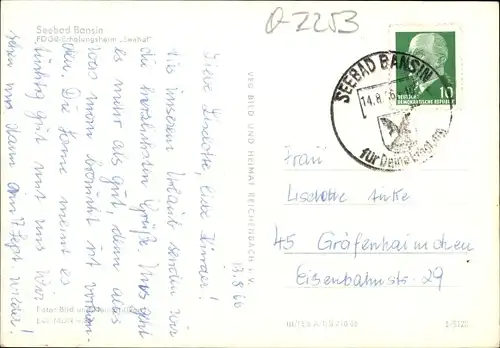 Seebad Bansin
FDGB-Erholungsheim „Seehof“
Q-2253
SEEBAD BANSIN
14.8.66
für Deine
DEUTSCHE
DEMOKRATISCHE REPUBLIK
10
13.8.66
Liebe Lieselotte, liebe Kinder!
Aus unserem Urlaub senden wir
die herzlichsten Grüße. Uns geht
es mehr als gut, denn alles
was man braucht ist vorhan-
den. Die Sonne meint es
tüchtig gut mit uns. Wir
sehen uns dann am 7. Sept. wieder!
VEB BILD UND HEIMAT REICHENBACH i. V.
Frau
45 Gräfenhainichen
Eisenbahnstr. 29
Foto: Bild und Heimat